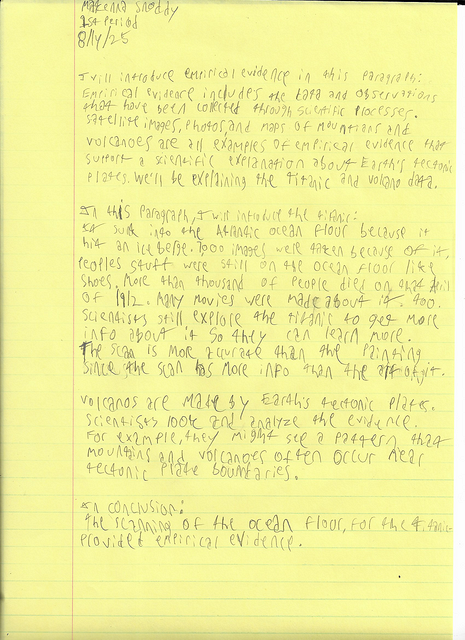 Makenna Snoddy
1st Period
8/14/25
I will introduce empirical evidence in this paragraph:
Empirical evidence includes the data and observations
that have been collected through scientific processes.
Satellite images, Photos, and maps of mountians and
volcanoes are all examples of empirical evidence that
support a scientific explanation about Earth's tectonic
plates. We'll be explaining the Titanic and volcano data.
In this Paragraph, I will introduce the titanic:
It sunk into the Atlantic ocean floor because it
hit an iceberge. 7000 images were taken because of it,
Peoples stuff were still on the ocean floor like
shoes. More than thousand of people died on that April
OF 1912. Many movies were made about it. too.
Scientists still explore the titanic to get more
info about it so they can learn more.
The scan is more accurate than the Painting
since the scan has more info than the art of it.
Volcanos are made by Earth's tectonic plates.
Scientists look and analyze the evidence.
For example, they might see a pattern that
mountains and volcanoes often occur near
tectonic plate boundaries.
In conclusion:
the scanning of the ocean floor, for the titanic
provided empirical evidence.